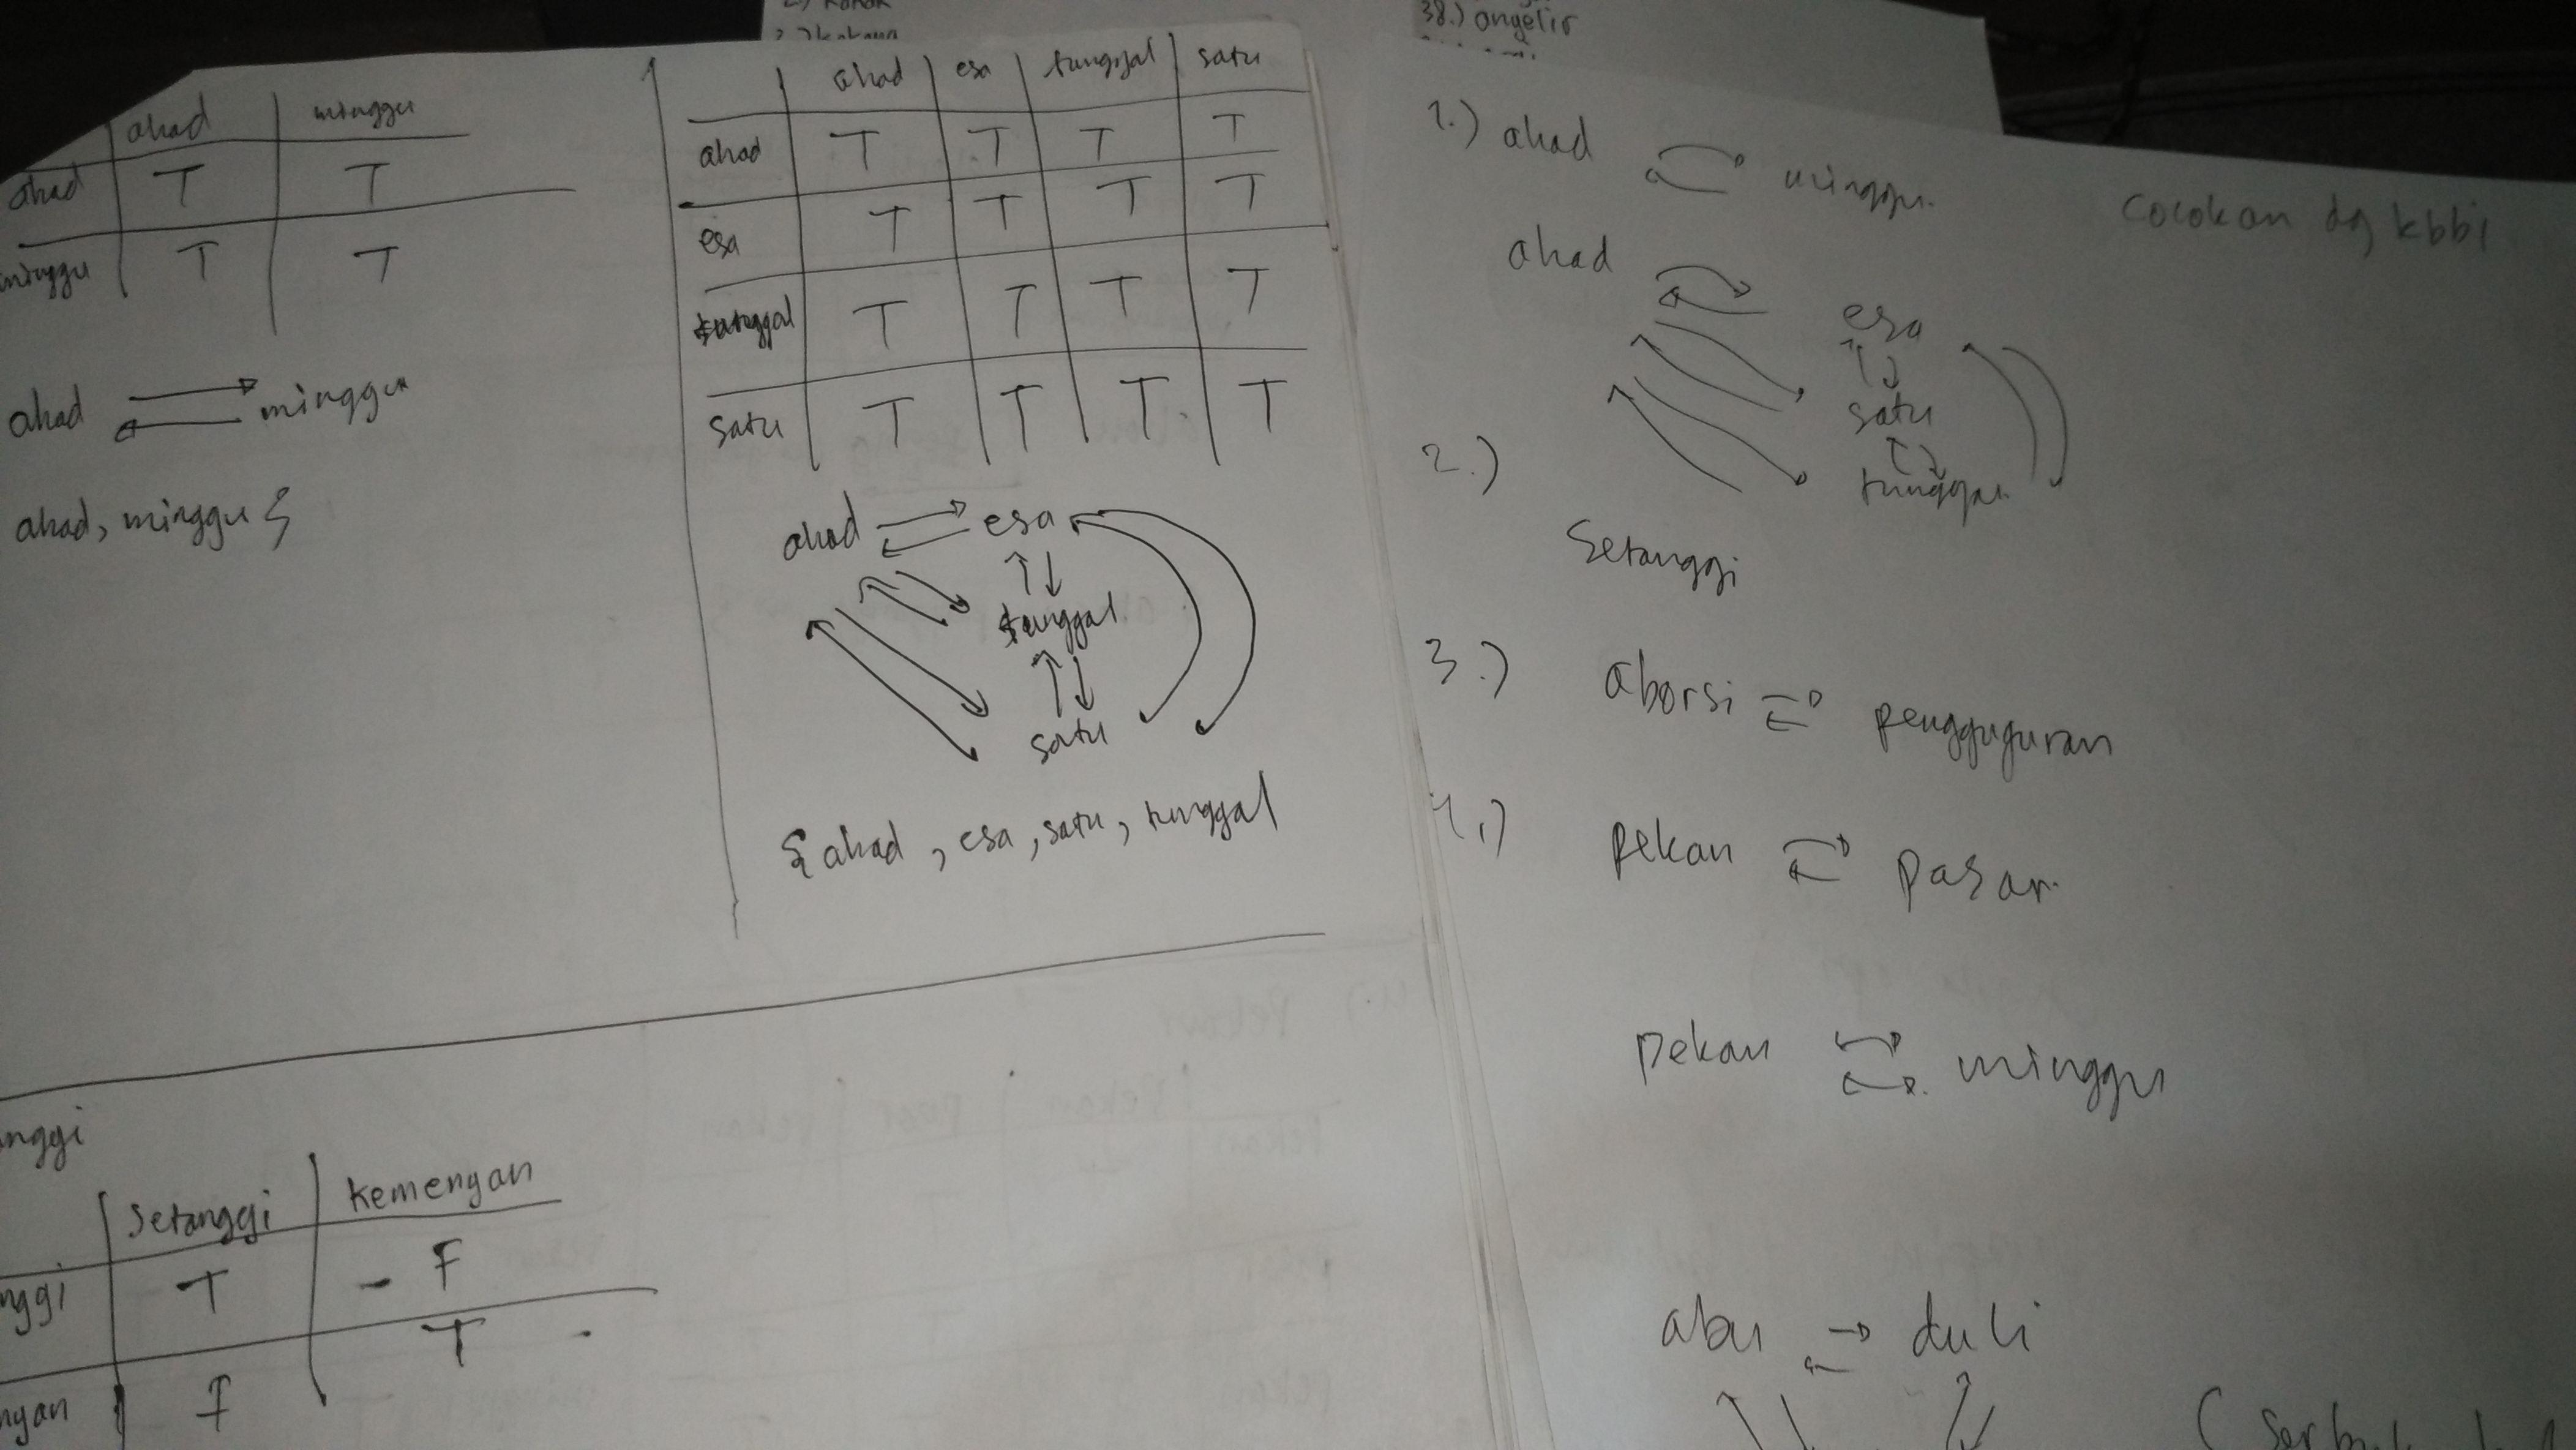 38.) angelir
ahad minggu
ahad T T
minggu T T
ahad minggu
ahad, minggu }
ahad esa tunggal satu
ahad T T T T
esa T T T T
tunggal T T T T
satu T T T T
ahad esa
tunggal
satu
{ ahad, esa, satu, tunggal
nggi
Setanggi kemenyan
nggi T - F
nyan F T
1.) ahad minggu.
cocokan dg kbbi
ahad
esa
satu
tunggal
2.)
Setanggi
3.) aborsi pengguguran
4.) pekan pasar.
pekan minggu
abu duli